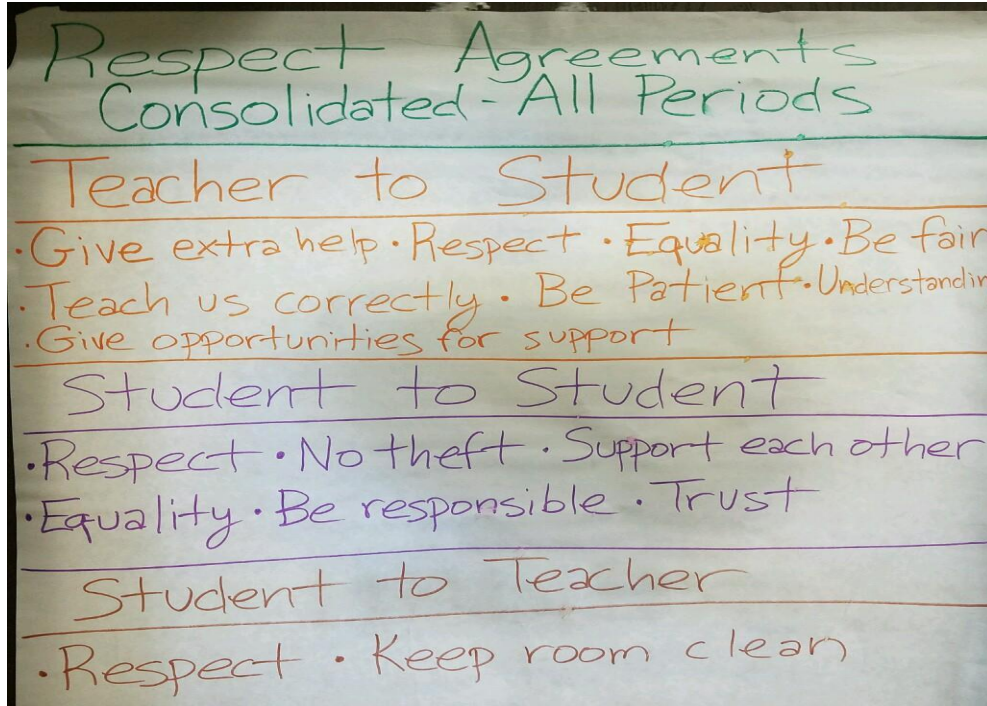 Respect Agreements
Consolidated - All Periods
Teacher to Student
· Give extra help · Respect · Equality · Be fair
· Teach us correctly · Be Patient · Understandin
· Give opportunities for support
Student to Student
· Respect · No theft · Support each other
· Equality · Be responsible · Trust
Student to Teacher
· Respect · Keep room clean